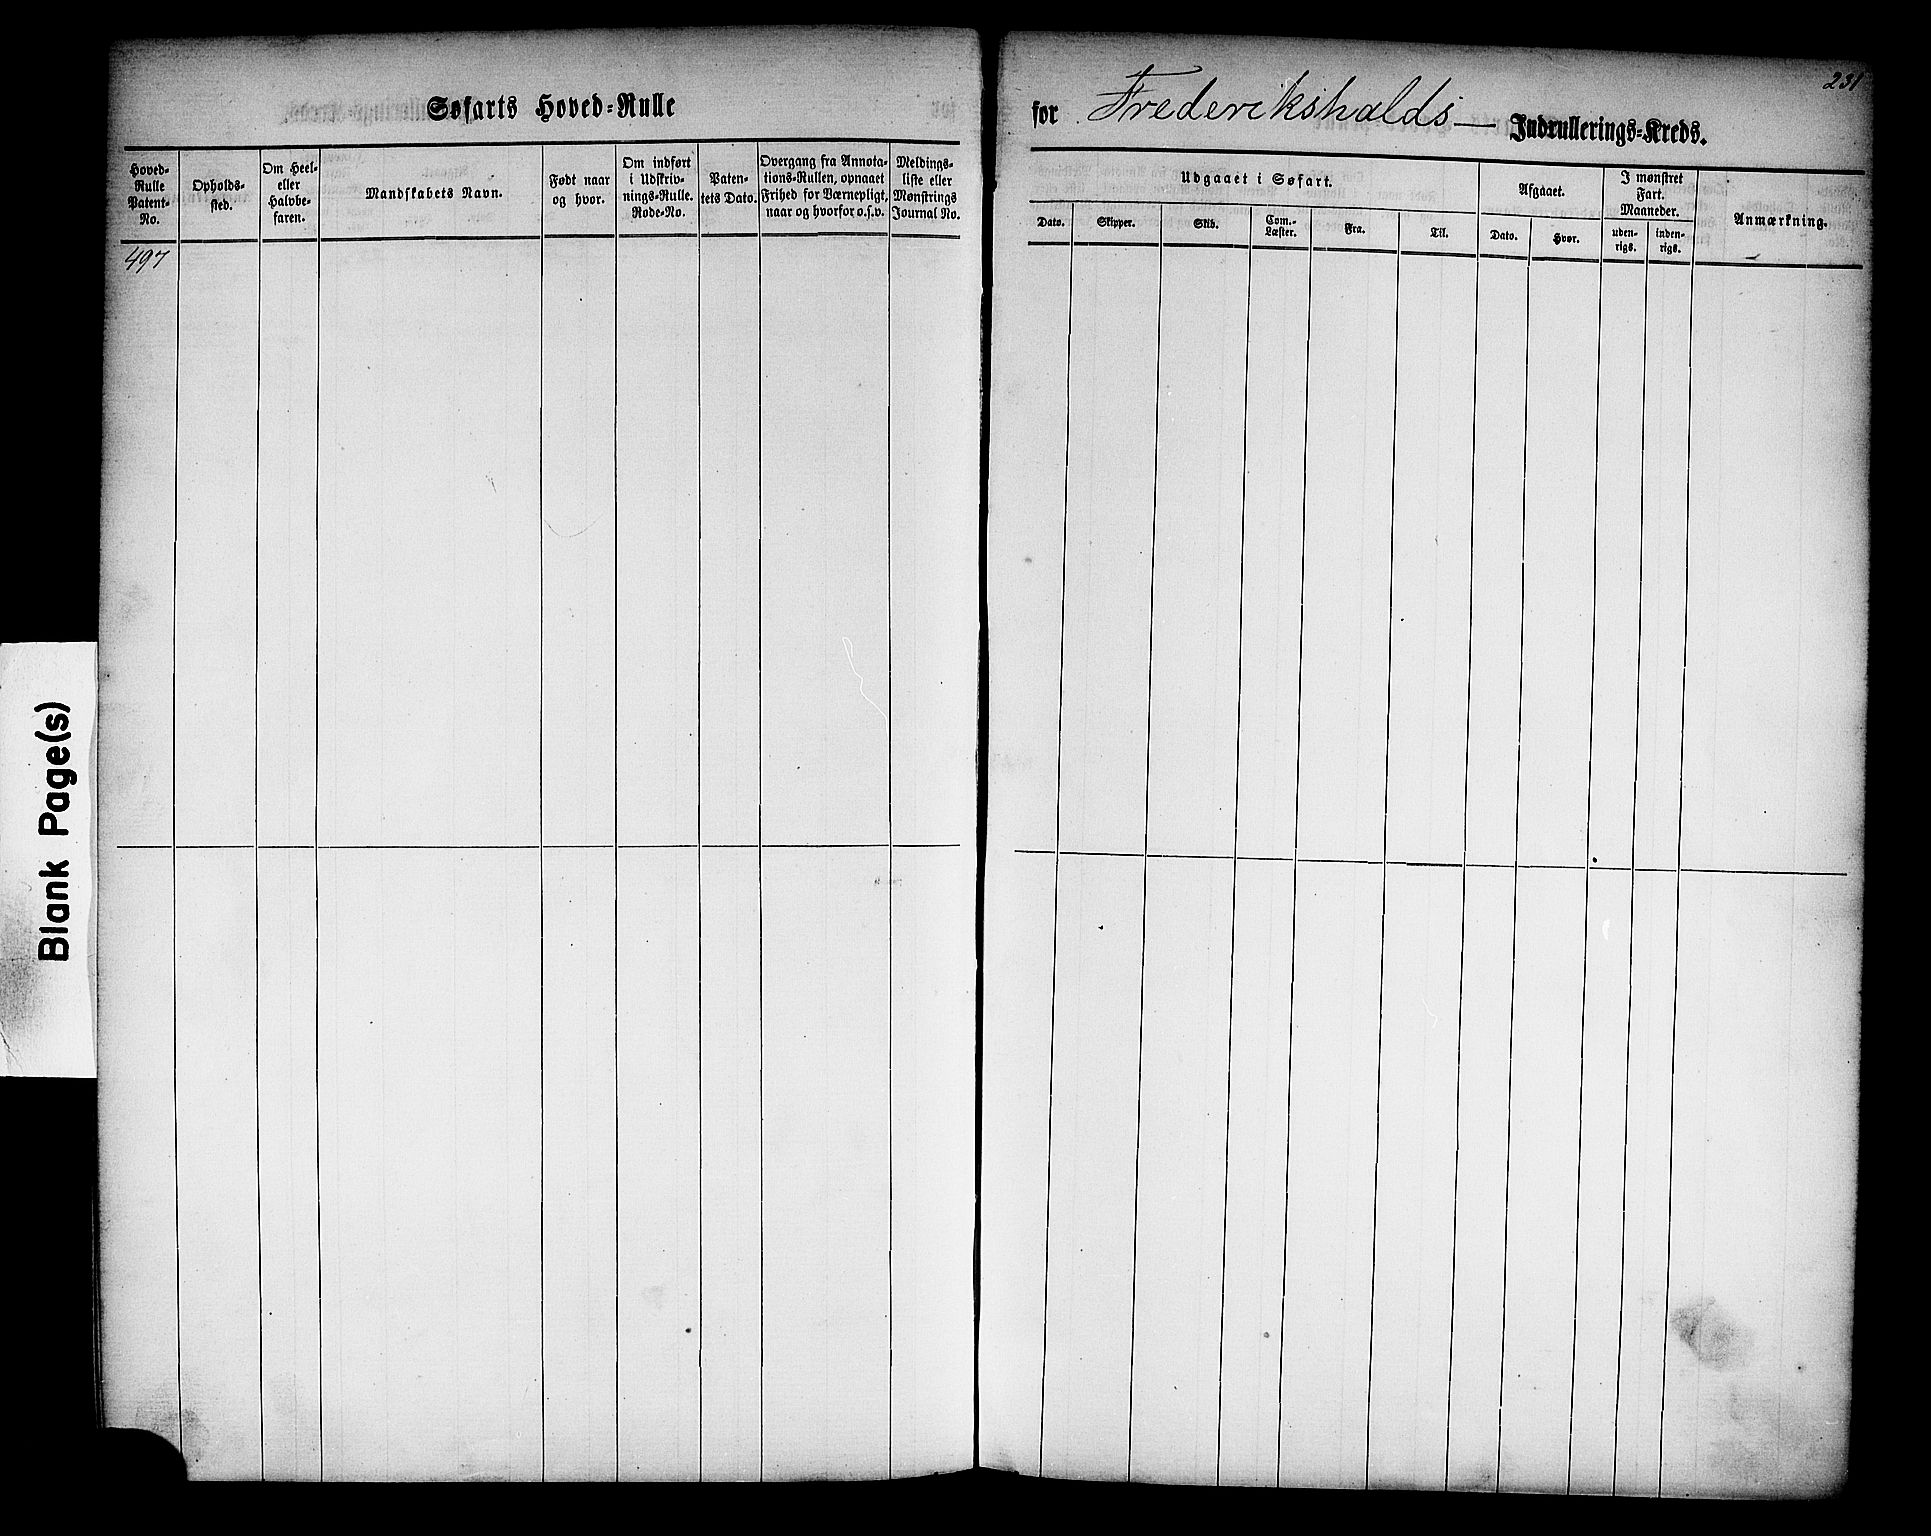 Søfarts Hoved-Rulle
Hoved-
Rulle
Patent-
No.
Opholds-
sted.
Om Heel-
eller
Halvbe-
faren.
Mandskabets Navn.
Født naar
og hvor.
Om indført
i Udskriv-
nings-Rulle.
Rode-No.
Paten-
tets Dato.
Overgang fra Annota-
tions-Rullen, opnaaet
Frihed for Værnepligt,
naar og hvorfor o.s.v.
Meldings-
liste eller
Mønstrings
Journal No.
497
231
for Frederikshalds Indrullerings-Kreds.
Udgaaet i Søfart.
Dato.
Skipper.
Skib.
Com.-
Læster.
Fra.
Til.
Afgaaet.
Dato.
Hvor.
I mønstret
Fart.
Maaneder.
uden-
rigs.
inden-
rigs.
Anmærkning.
Blank Page(s)